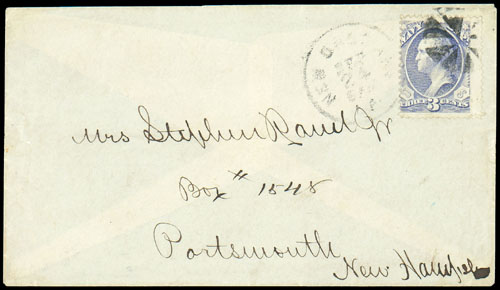 NEW ORLEANS
NAVY
THREE 3 CENTS
Mrs Stephen Rand Jr
Box # 1548
Portsmouth
New Hamp